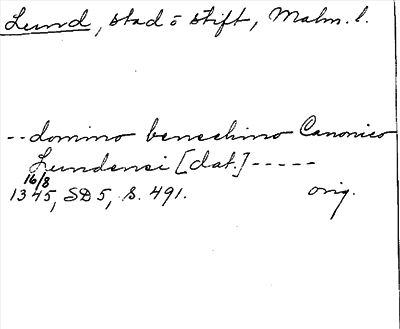 Lund, stad o stift, Malm. l.
-- domino benechino Canonico
Lundensi [dat.] -----
16/8
1345, SD 5, s. 491. orig.